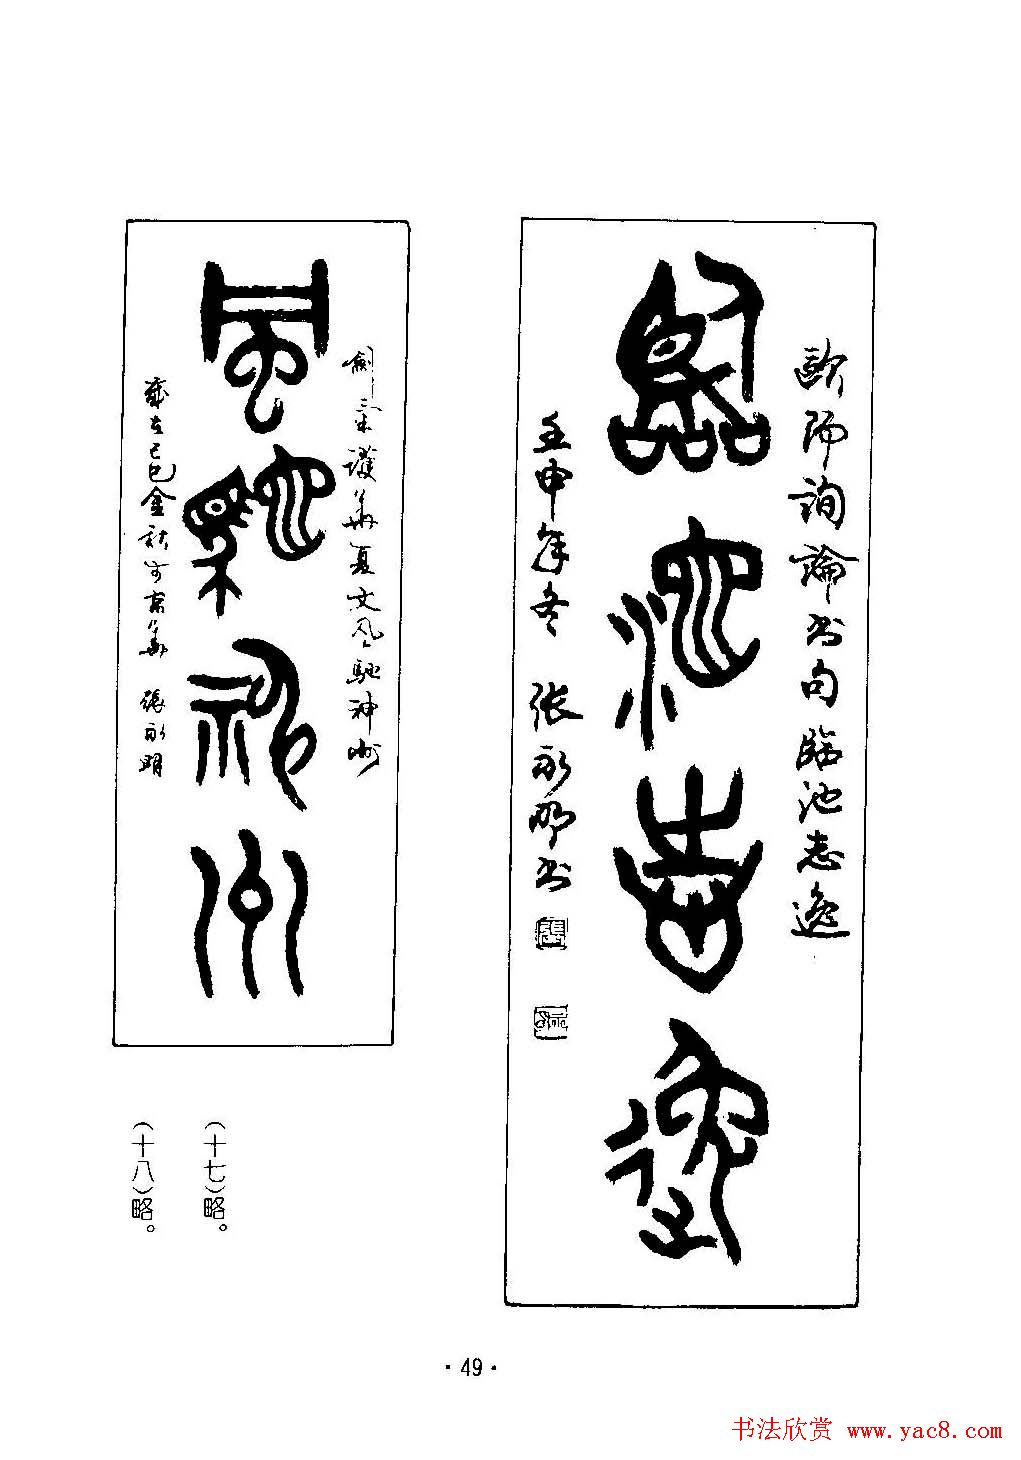 歐陽詢論书句臨池志逸
臨池志逸
壬申年冬 张永明书
劍氣護華夏文风馳神州
風馳神州
歲在己巳金秋于京華 張永明
(十七)略。
(十八)略。
·49·
书法欣赏 www.yac8.com